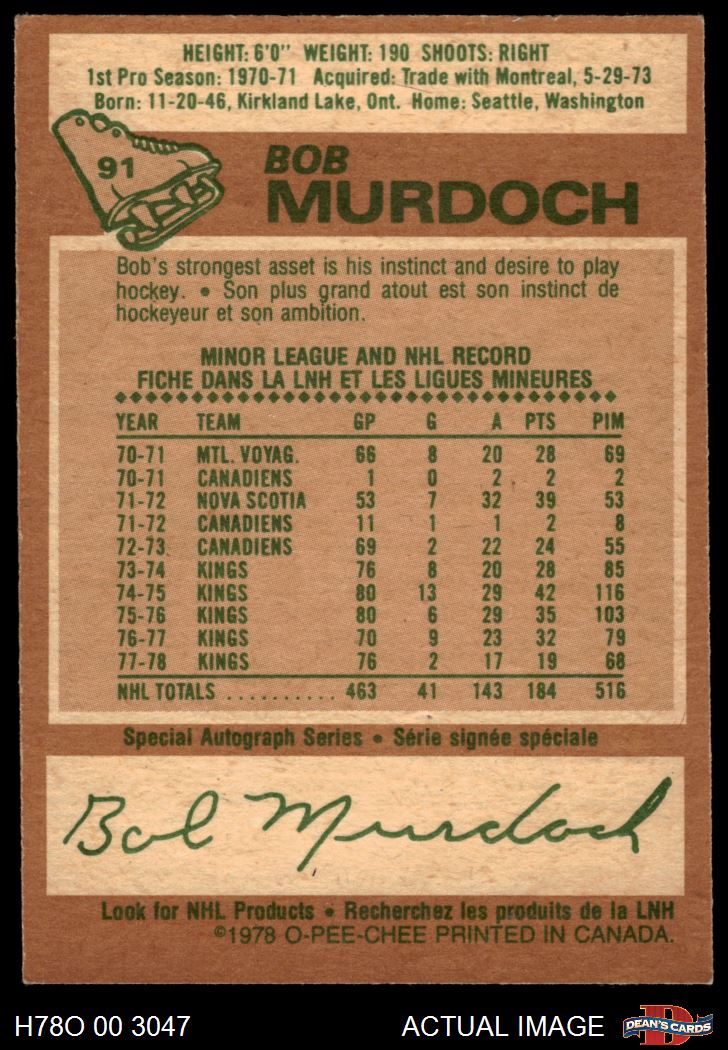 HEIGHT: 6'0" WEIGHT: 190 SHOOTS: RIGHT
1st Pro Season: 1970-71 Acquired: Trade with Montreal, 5-29-73
Born: 11-20-46, Kirkland Lake, Ont. Home: Seattle, Washington
91
BOB
MURDOCH
Bob's strongest asset is his instinct and desire to play
hockey. • Son plus grand atout est son instinct de
hockeyeur et son ambition.
MINOR LEAGUE AND NHL RECORD
FICHE DANS LA LNH ET LES LIGUES MINEURES
YEAR TEAM GP G A PTS PIM
70-71 MTL. VOYAG. 66 8 20 28 69
70-71 CANADIENS 1 0 2 2 2
71-72 NOVA SCOTIA 53 7 32 39 53
71-72 CANADIENS 11 1 1 2 8
72-73 CANADIENS 69 2 22 24 55
73-74 KINGS 76 8 20 28 85
74-75 KINGS 80 13 29 42 116
75-76 KINGS 80 6 29 35 103
76-77 KINGS 70 9 23 32 79
77-78 KINGS 76 2 17 19 68
NHL TOTALS .......... 463 41 143 184 516
Special Autograph Series • Série signée spéciale
Bob Murdoch
Look for NHL Products • Recherchez les produits de la LNH
©1978 O-PEE-CHEE PRINTED IN CANADA.
H78O 00 3047 ACTUAL IMAGE D DEAN'S CARDS